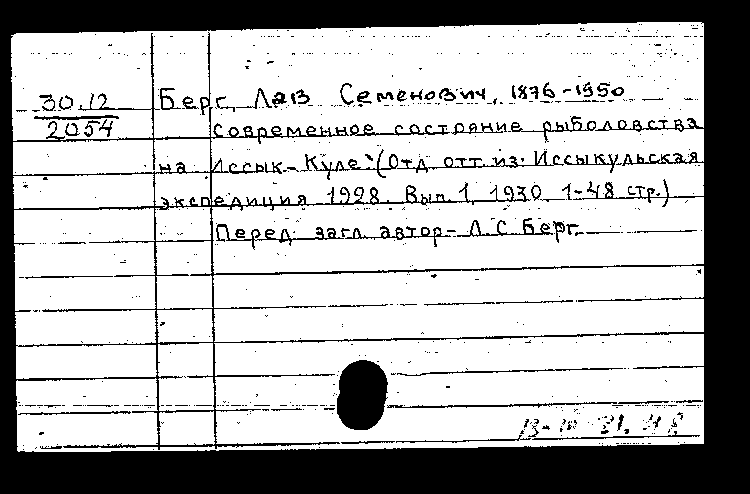 30.12
2054
Берг, Лав Семенович, 1876-1950
Современное состояние рыболовства
на Иссык-Куле. (Отд. отт. из: Иссыкульская
экспедиция 1928. Вып. 1, 1930. 1-48 стр.)
Перед загл. автор- Л.С. Берг.